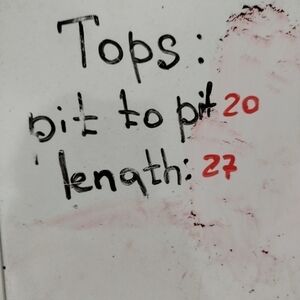 Tops:
pit to pit 20
length: 27